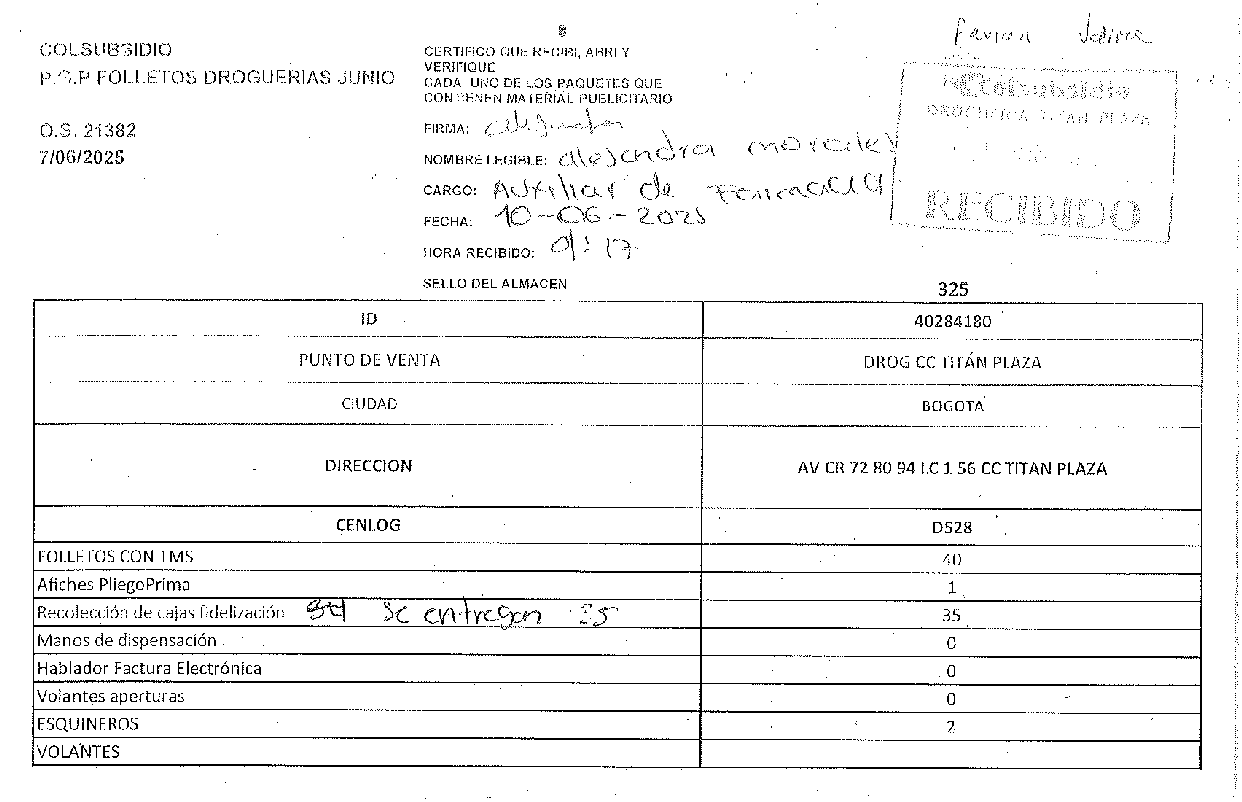 8
COLSUBSIDIO
P.O.P FOLLETOS DROGUERIAS JUNIO
O.S. 21382
7/06/2025
CERTIFICO QUE RECIBI, ABRI Y
VERIFIQUE
CADA UNO DE LOS PAQUETES QUE
CONTIENEN MATERIAL PUBLICITARIO
FIRMA: alejandra
NOMBRE LEGIBLE: alejandra morales
CARGO: Auxiliar de
FECHA: 10-06-2025
HORA RECIBIDO: 9:17
SELLO DEL ALMACEN
Colsubsidio
DROGUERIA TITAN PLAZA
RECIBIDO
325
ID 40284180
PUNTO DE VENTA DROG CC TITÁN PLAZA
CIUDAD BOGOTA
DIRECCION AV CR 72 80 94 LC 1 56 CC TITAN PLAZA
CENLOG DS28
FOLLETOS CON TMS 40
Afiches PliegoPrima 1
Recolección de cajas fidelización Se entregan 35 35
Manos de dispensación 0
Hablador Factura Electrónica 0
Volantes aperturas 0
ESQUINEROS 2
VOLANTES